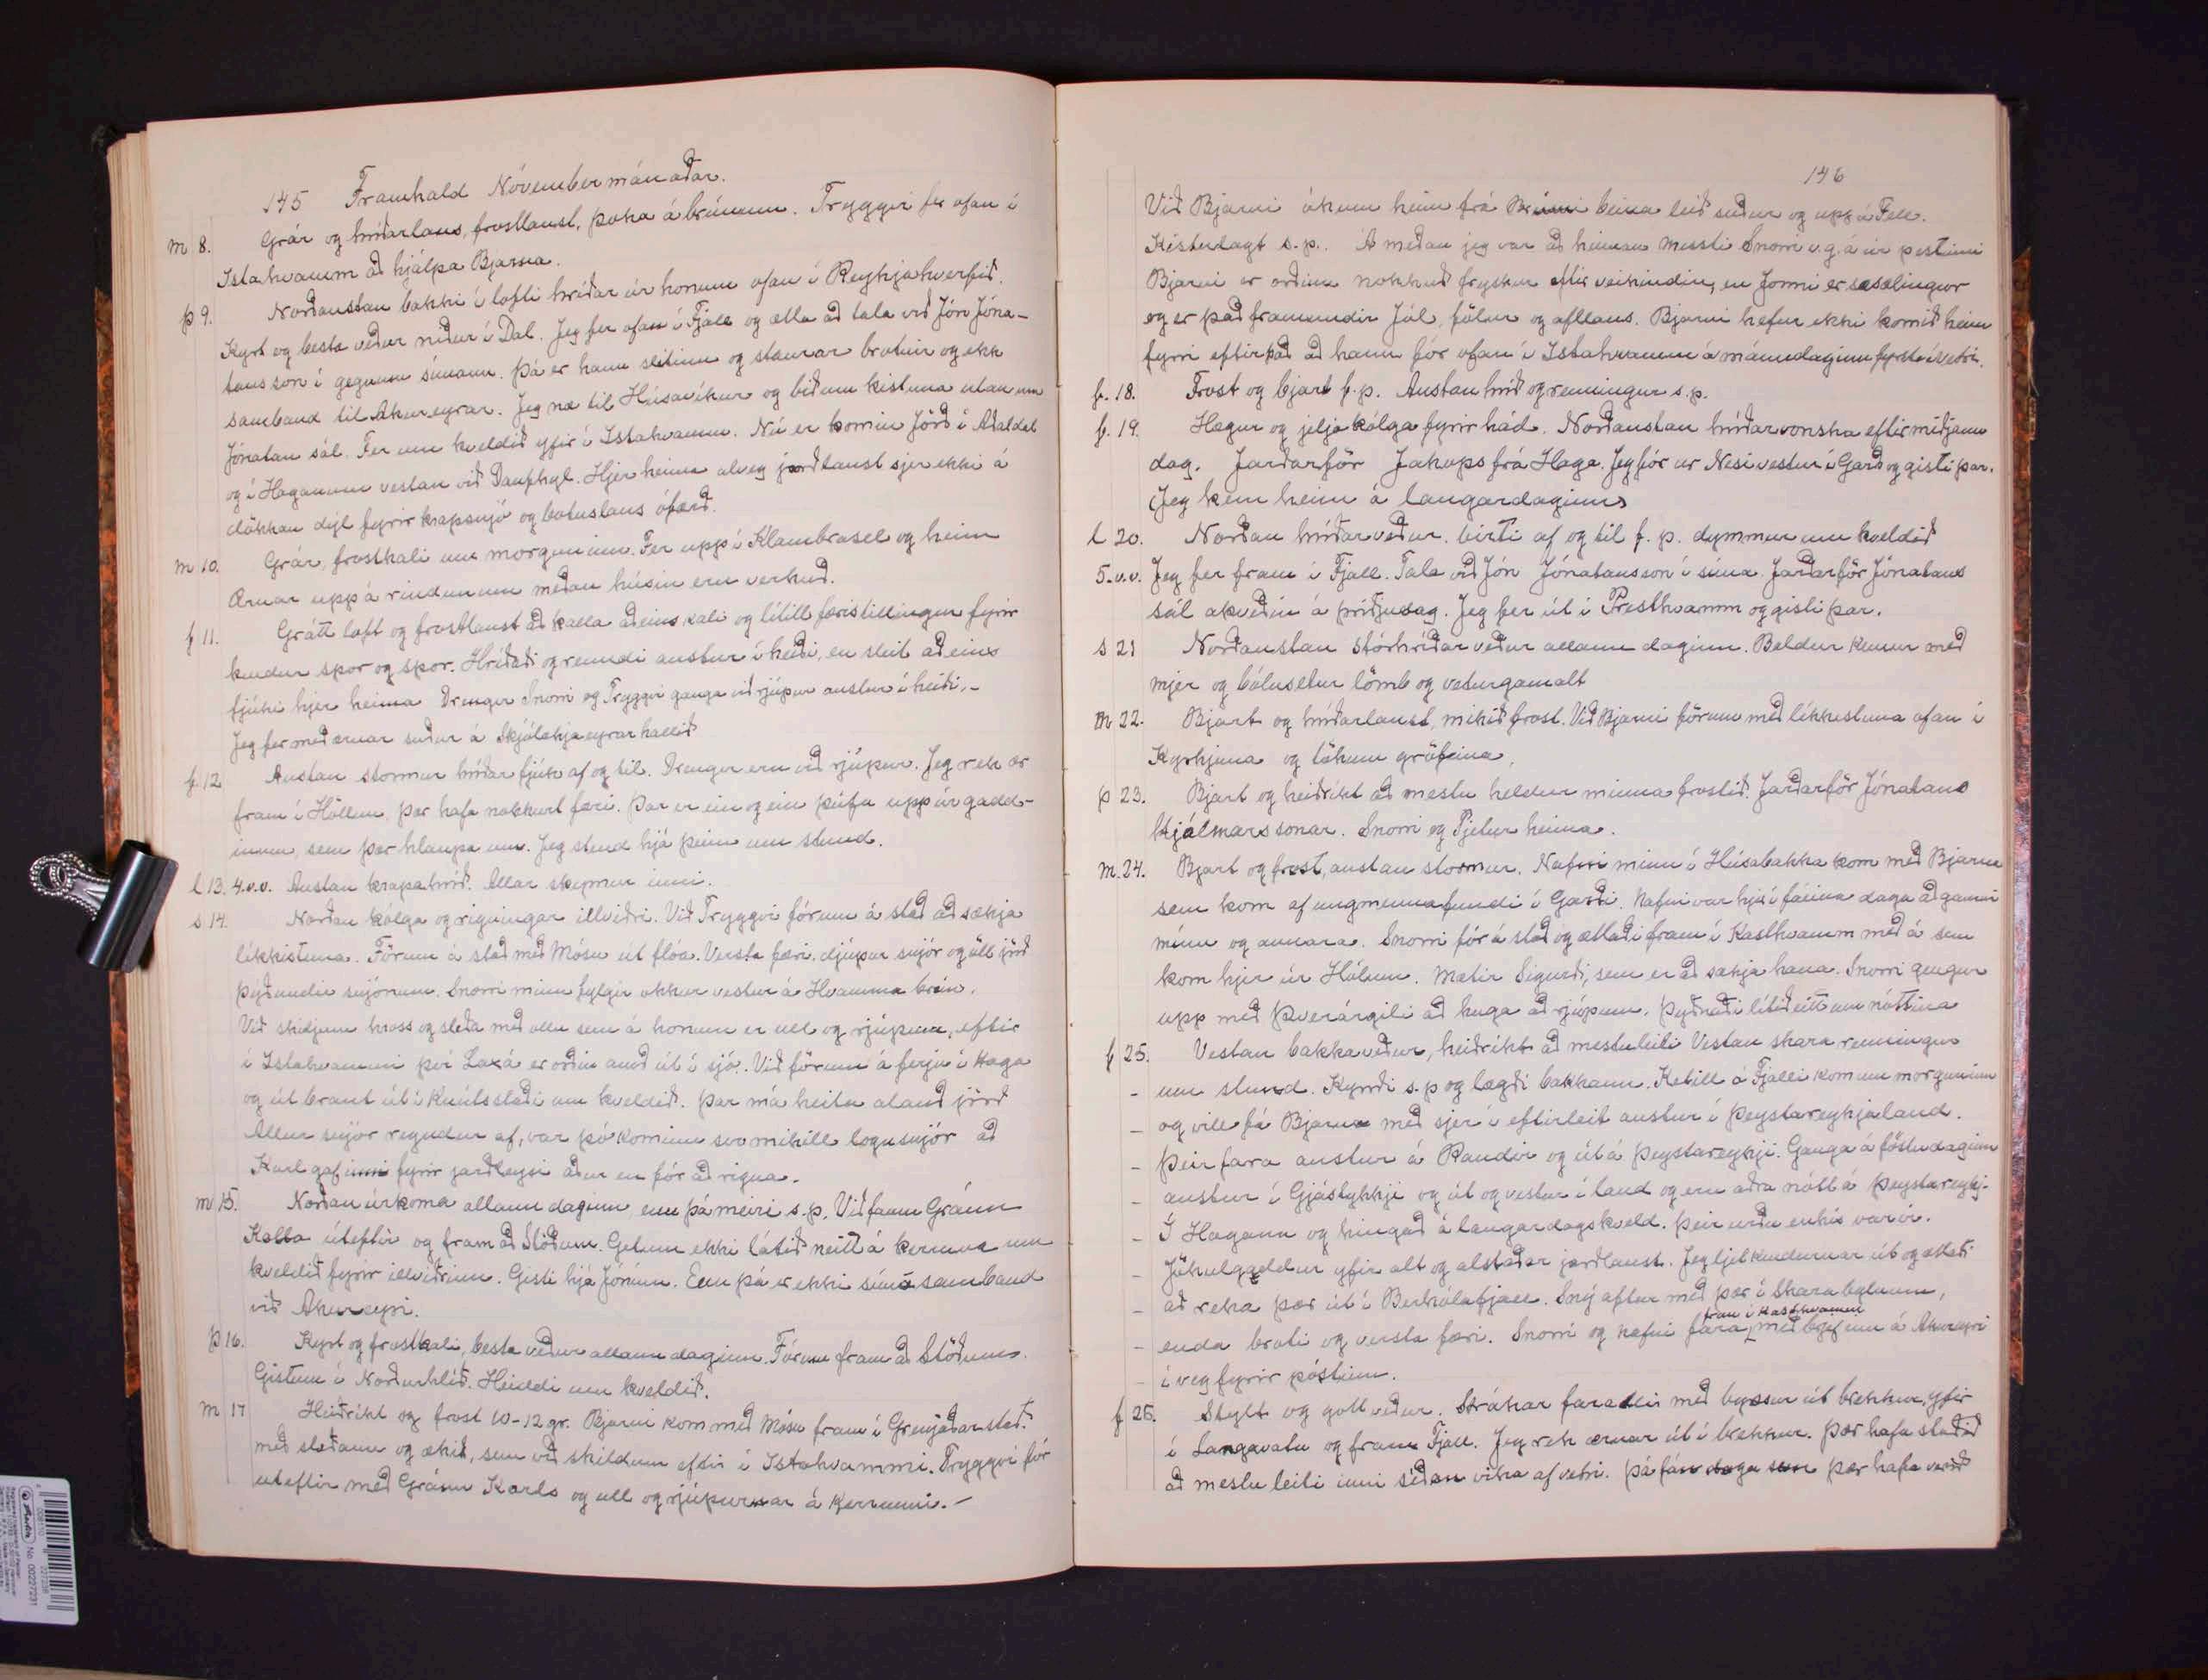 145 Framhald Nóvembermánaðar.
m 8. Grár og hríðarlaus, frostlaust, þoka á brúnum. Tryggvi fer ofan í
Ystahvamm að hjálpa Bjarna.
þ 9. Norðaustan bakki í lofti hríðar úr honum ofan í Reykjahverfið.
Kyrt og besta veður niður í Dal. Jeg fer ofan í Fjall og ætla að tala við Jón Jóna-
tansson í gegnum símann. Þá er hann slitinn og staurar brotnir og ekk
samband til Akureyrar. Jeg næ til Húsavíkur og biðum kistuna utan um
Jónatan sál. Fer um kveldið yfir í Ystahvamm. Nú er komin Jörð í Aðaldal
og í Haganum vestan við Hjer heima alveg jarðlaust sjer ekki á
dökkan díl fyrir krapsnjó og botnlaus ófærð.
m 10. Grár, frostkali um morguninn. Fer upp í Klambrasel og heim
Ærnar upp á rindunum meðan húsin eru verkuð.
f 11. Grátt loft og frostlaust að kalla aðeins kali og lítill færistillingur fyrir
kindur spor og spor. Hríðaði og renndi austur í heiði, en sleit aðeins
fjúki hjer heima Drengir Snorri og Tryggvi ganga við rjúpur austur í heiði.-
Jeg fer með ærnar suður á Skjólskjaeyrarhallið
f. 12 Austan stormur hríðar fjúk af og til. Drengir eru við rjúpur. Jeg rek ær
fram í Höllin, þær hafa nokkurt færi. Þar er ein og ein þúfa upp úr gadd-
inum, sem þær hlaupa um. Jeg stend hjá þeim um stund.
l 13. 4.v.v. Austan krapahríð. Allar skepnur inni.
s 14. Norðan kólga og rigningar illviðri. Við Tryggvi fórum á stað að sækja
líkkistuna. Förum á stað með Mósu út flóa. Versta færi, djúpur snjór og öll jörð
þýð undir snjónum. Snorri minn fylgir okkur vestur á Hvamma brún.
Við skiljum hross og sleða með ollu sem á honum er ull og rjúpum, eftir
í Ystahvammi því Laxá er orðin auð út í sjó. Við förum á ferju í Haga
og út braut út í Knútsstaði um kveldið. Þar má heita alauð jörð
Allur snjór rigndur af, var þó kominn svo mikill logusnjór að
Karl gaf inni fyrir jarðleysi áður en fór að rigna.
m 15. Norðan úrkoma allann daginn, enn þá meiri s.p. Við faum Gránn
Kalla úteftir og fram að Stöðum. Getum ekki látið neitt á kerruna um
kveldið fyrir illviðrinu. Gisti hjá Jóninu. Enn þá er ekki síma samband
við Akureyri.
þ 16. Kyrt og frostkali, besta veður allann daginn. Fórum fram að Stöðum.
Gistum í Norðurhlíð. Heiddi um kveldið.
m 17 Heiðríkt og frost 10-12 gr. Bjarni kom með Mósu fram í Grenjaðarstað.
með sleðann og ækið, sem við skildum eftir í Ystahvammi. Tryggvi fór
úteftir með Gránn Karls og ull og rjúpurnar á kerrunni.-
146
Við Bjarni ókum heim frá Brúnni beina leið suður og upp á Fell.
Kisturlagt s.p. Á meðan jeg var að heiman messti Snorri v.g. á úr pestinni
Bjarni er orðinn nokkuð frískur eftir veikindin, en Jonni er vesælingur
og er það framundir Jól, fölur og afllaus. Bjarni hefur ekki komið heim
fyrri eftir það að hann fór ofan í Ystahvamm á mánudaginn fyrsta í vetri.
f. 18. Frost og bjart f.p. Austan hríð og renningur s.p.
f. 19. Hægur og jelja kólga fyrir hád. Norðaustan hríðarvonska eftir miðjann
dag. Jarðarför Jakops frá Haga. Jeg fór úr Nesi vestur í Garð og gisti þar.
(Jeg kem heim á laugardaginn)
l 20. Norðan hríðarveður. birti af og til f.p. dymmur um kveldið
5.v.v. Jeg fer fram í Fjall. Tala við Jón Jónatansson í síma. Jarðarför Jónatans
sál ákveðin á þriðjudag. Jeg fer út í Presthvamm og gisti þar.
s 21 Norðaustan stórhríðar veður allann daginn. Baldur kemur með
mjer og bólusetur lömb og veturgamalt
m 22. Bjart og hríðarlaust, mikið frost. Við Bjarni förum með líkkistuna ofan í
Kyrkjuna og tökum gröfina.
þ 23. Bjart og heiðríkt að mestu heldur minna frostið. Jarðarför Jónatans
Hjálmarssonar. Snorri og Pjetur heima.
m. 24. Bjart og frost, austan stormur. Nafni minn í Húsabakka kom með Bjarna
sem kom af ungmennafundi í Garði. Nafni var hjer í fáeina daga að gamni
mínu og annara. Snorri fór á stað og ætlaði fram í Kasthvamm með á sem
kom hjer úr Hólum. Mætir Sigurði, sem er að sækja hana. Snorri gengur
upp með Þverárgili að huga að rjúpum. Þyðnaði lítið eitt um nóttina
f 25. Vestan bakkaveður, heiðríkt að mestu leiti Vestan skara renningur
- um stund. Kyrrði s.p og lægði bakkann. Ketill á Fjalli kom um morguninn
- og vill fá Bjarna með sjer í eftirleit austur í Þeystareykjaland.
- Þeir fara austur á Randir og út á Þeystareyki. Ganga á föstudaginn
- austur í Gjástykki og út og vestur í land og eru aðra nótt á Þeystareykj.
- Í Hagann og hingað á laugardagskveld. Þeir urðu enkis varir.
- Jökulgaddur yfir alt og alstaðar jarðlaust. Jeg ljet kindurnar út og ætlaði
- að reka þær út í Berhólafjall. Sný aftur með þær í Skarabeljum,
- enda broti og versta færi. Snorri og nafni fara fram í Kasthvamm með brjefum á Akureyri
- í veg fyrir póstinn.
f 26. Stylt og gott veður. Strákar fara allir með byssur út brekkur, yfir
í Langavatn og fram Fjall. Jeg rek ærnar út í brekkur. Þær hafa staðið
að mestu leiti inni síðan vika af vetri. Þá fáu daga sem þær hafa verið